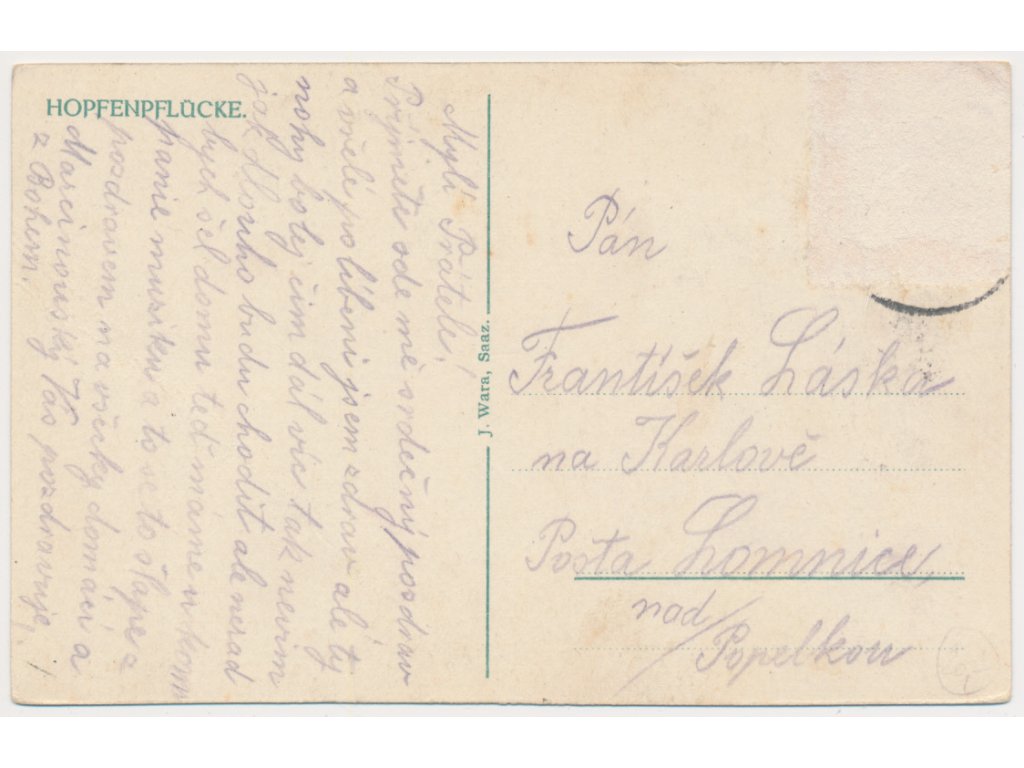 HOPFENPFLÜCKE.
Mylí Prátelé,
Prijmete ode mé srdečný pozdrav
a mělé políbeni jsem zdrav ale ty
nohy bolej čim dál víc tak nevim
jak dlouho budu chodit ale nerad
bych šel domu teď máme u kom
panie musiku a to se to šlape z
pozdravem na všecky domácí a
Marcinovský Vás pozdravuje,
z Bohem.
J. Wara, Saaz.
Pán
František Láska
na Karlově
Pošta Lomnice,
nad/
Popelkou